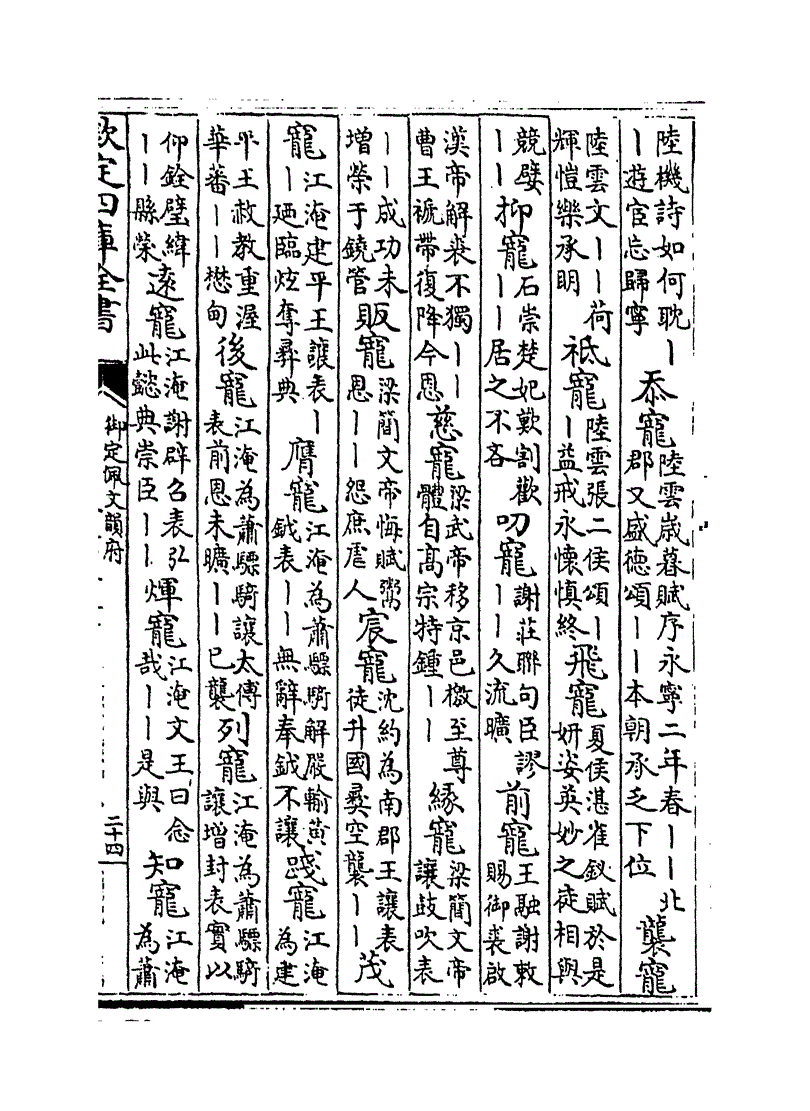 陸機詩如何耽丨丨遊宦忘歸寧 忝寵 陸雲歲暮賦序永寧二年春丨丨北郡又盛德頌丨丨本朝承乏下位 襲寵
陸雲文丨丨荷輝愷樂承明 祗寵 陸雲張二侯頌丨丨益戒永懷慎終 飛寵 夏侯湛雀釵賦於是妍姿英妙之徒相與
競嬖丨丨 抑寵 石崇楚妃歎割歡丨丨居之不吝 叨寵 謝莊聯句臣謬丨丨久流曠 前寵 王融謝敕賜御裘啟
漢帝解裘不獨丨丨曹王褫帶復降今恩 慈寵 梁武帝移京邑檄至尊體自高宗特鍾丨丨 緣寵 梁簡文帝讓鼓吹表
丨丨成功未增榮于鐃管 販寵 梁簡文帝悔賦鬻恩丨丨怨庶虐人 宸寵 沈約為南郡王讓表徒升國彞空襲丨丨 茂
寵 江淹建平王讓表丨丨廼臨炫奪彞典 膺寵 江淹為蕭驃騎解嚴輸黄鉞表丨丨無辭奉鉞不讓 踐寵 江淹為建
平王赦教重渥華蕃丨丨懋甸 後寵 江淹為蕭驃騎讓太傅表前恩未曠丨丨已襲 列寵 江淹為蕭驃騎讓增封表實以
仰銓璧緯丨丨縣榮 遠寵 江淹謝辟召表弘此懿典崇臣丨丨 煇寵 江淹文王曰念哉丨丨是與 知寵 江淹為蕭
欽定四庫全書
御定佩文韻府
二十四